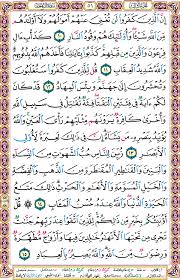 إِنَّ ٱلَّذِينَ كَفَرُوا۟ لَن تُغْنِىَ عَنْهُمْ أَمْوَٰلُهُمْ وَلَآ أَوْلَٰدُهُم
مِّنَ ٱللَّهِ شَيْـًٔا وَأُو۟لَٰٓئِكَ هُمْ وَقُودُ ٱلنَّارِ ١٠ كَدَأْبِ ءَالِ
فِرْعَوْنَ وَٱلَّذِينَ مِن قَبْلِهِمْ كَذَّبُوا۟ بِـَٔايَٰتِنَا فَأَخَذَهُمُ ٱللَّهُ بِذُنُوبِهِمْ
وَٱللَّهُ شَدِيدُ ٱلْعِقَابِ ١١ قُل لِّلَّذِينَ كَفَرُوا۟ سَتُغْلَبُونَ
وَتُحْشَرُونَ إِلَىٰ جَهَنَّمَ وَبِئْسَ ٱلْمِهَادُ ١٢ قَدْ كَانَ
لَكُمْ ءَايَةٌ فِى فِئَتَيْنِ ٱلْتَقَتَا فِئَةٌ تُقَٰتِلُ فِى سَبِيلِ ٱللَّهِ
وَأُخْرَىٰ كَافِرَةٌ يَرَوْنَهُم مِّثْلَيْهِمْ رَأْىَ ٱلْعَيْنِ وَٱللَّهُ
يُؤَيِّدُ بِنَصْرِهِۦ مَن يَشَآءُ إِنَّ فِى ذَٰلِكَ لَعِبْرَةً لِّأُو۟لِى
ٱلْأَبْصَٰرِ ١٣ زُيِّنَ لِلنَّاسِ حُبُّ ٱلشَّهَوَٰتِ مِنَ ٱلنِّسَآءِ
وَٱلْبَنِينَ وَٱلْقَنَٰطِيرِ ٱلْمُقَنطَرَةِ مِنَ ٱلذَّهَبِ وَٱلْفِضَّةِ
وَٱلْخَيْلِ ٱلْمُسَوَّمَةِ وَٱلْأَنْعَٰمِ وَٱلْحَرْثِ ذَٰلِكَ مَتَٰعُ
ٱلْحَيَوٰةِ ٱلدُّنْيَا وَٱللَّهُ عِندَهُۥ حُسْنُ ٱلْمَـَٔابِ ١٤ قُلْ
أَؤُنَبِّئُكُم بِخَيْرٍ مِّن ذَٰلِكُمْ لِلَّذِينَ ٱتَّقَوْا۟ عِندَ رَبِّهِمْ جَنَّٰتٌ
تَجْرِى مِن تَحْتِهَا ٱلْأَنْهَٰرُ خَٰلِدِينَ فِيهَا وَأَزْوَٰجٌ مُّطَهَّرَةٌ
وَرِضْوَٰنٌ مِّنَ ٱللَّهِ وَٱللَّهُ بَصِيرٌۢ بِٱلْعِبَادِ ١٥